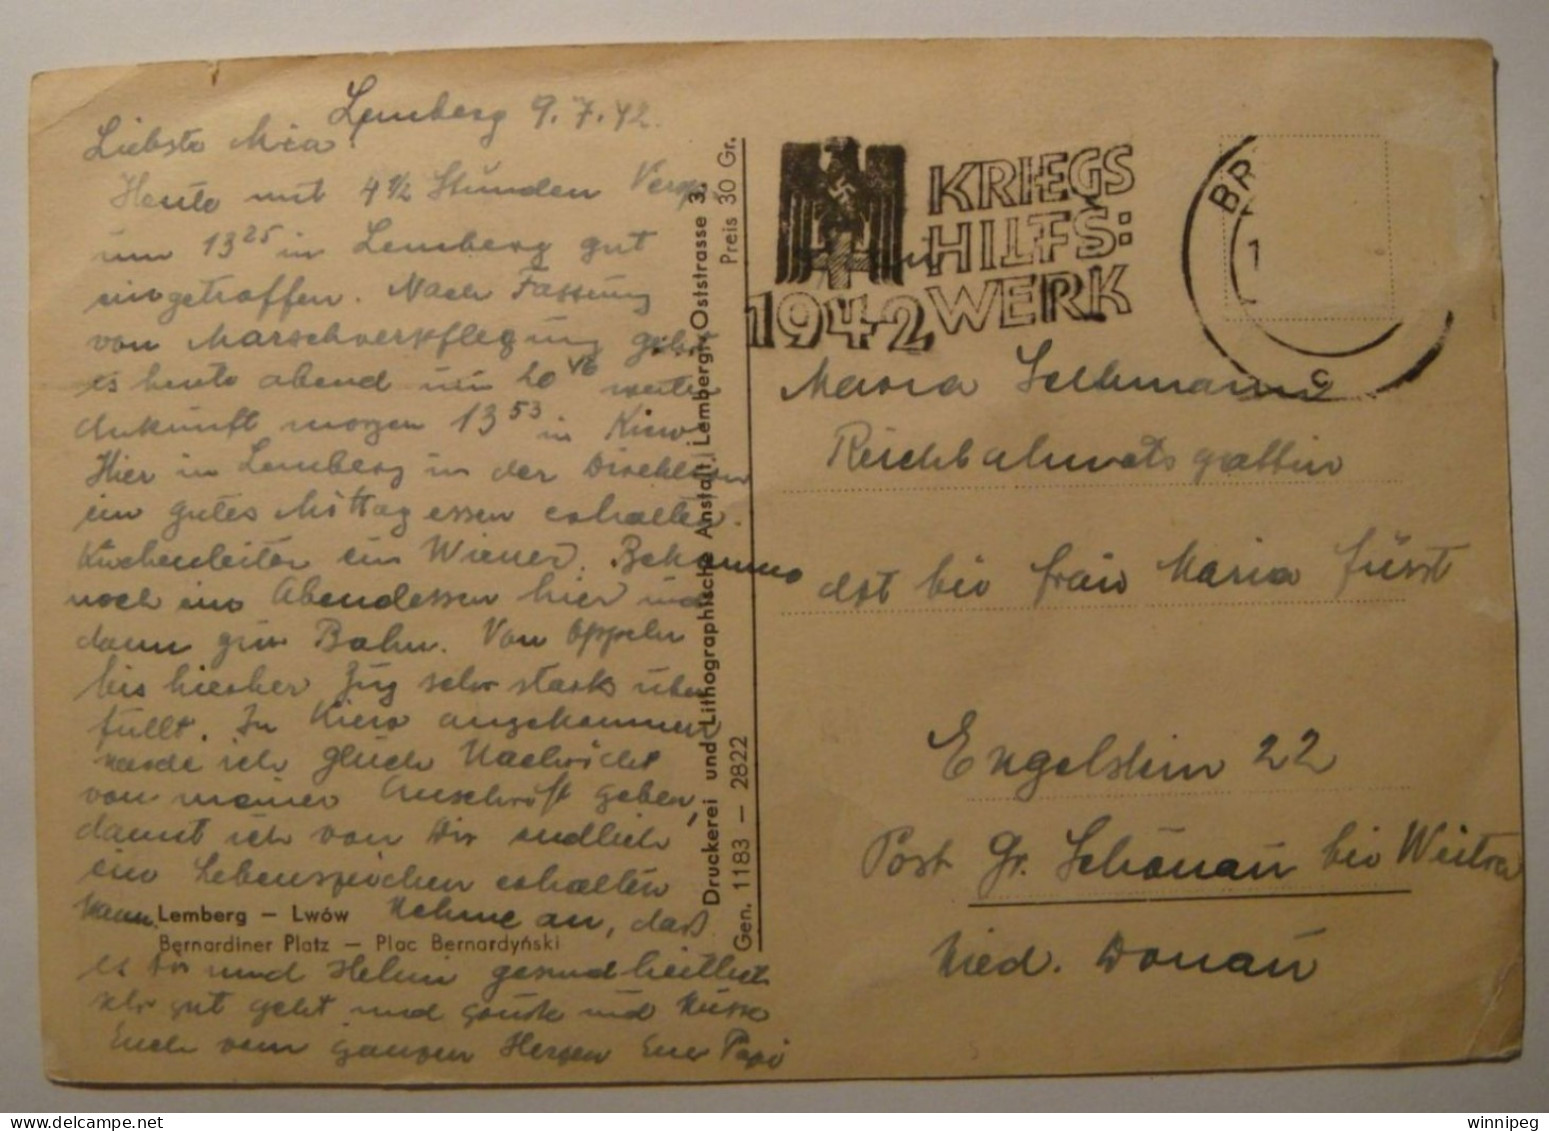 Lemberg 9.7.42.
Liebste Mia
Heute mit 4 1/2 Stunden
um 13 25 in Lemberg gut
eingetroffen. Nach Fassung
von Marschverpflegung geht
es heute abend um 20 weiter
Ankunft morgen 13 53 in Kiew
Hier in Lemberg in der Direktion
ein gutes Mittagessen erhalten.
Küchenleiter ein Wiener. Bekomme
noch ein Abendessen hier und
dann zur Bahn. Von Oppeln
bis hierher Zug sehr stark über
füllt. In Kiew angekommen
werde ich gleich Nachricht
von meiner Anschrift geben,
damit ich von Dir endlich
ein Lebenszeichen erhalten
kann. Nehme an, daß
es Dir und Helmi gesundheitlich
sehr gut geht und grüße und küsse
Euch vom ganzen Herzen Euer Papi
Lemberg – Lwów
Bernardiner Platz – Plac Bernardyński
Druckerei und Lithographische Anstalt, Lemberg, Oststrasse 3.
Gen. 1183 – 2822
Preis 30 Gr.
KRIEGS
HILFS:
WERK
1942
BR
1
c
Maria
Reichbahnratsgattin
dzt bei Frau Maria Fürst
Engelstein 22
Post Gr. Schönau bei Weitra
Nied. Donau
winnipeg